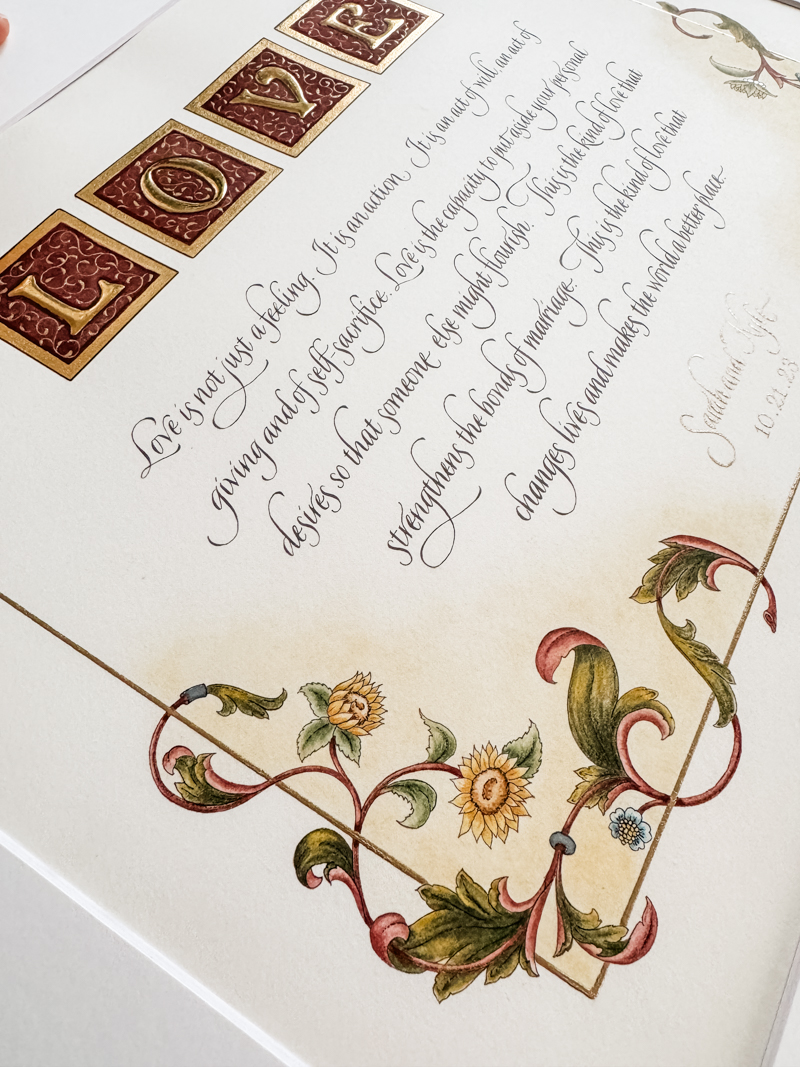 LOVE
Love is not just a feeling. It is an action. It is an act of will, an act of
giving and of self-sacrifice. Love is the capacity to put aside your personal
desires so that someone else might flourish. This is the kind of love that
strengthens the bonds of marriage. This is the kind of love that
changes lives and makes the world a better place.
Sarah and Kyle
10.21.23